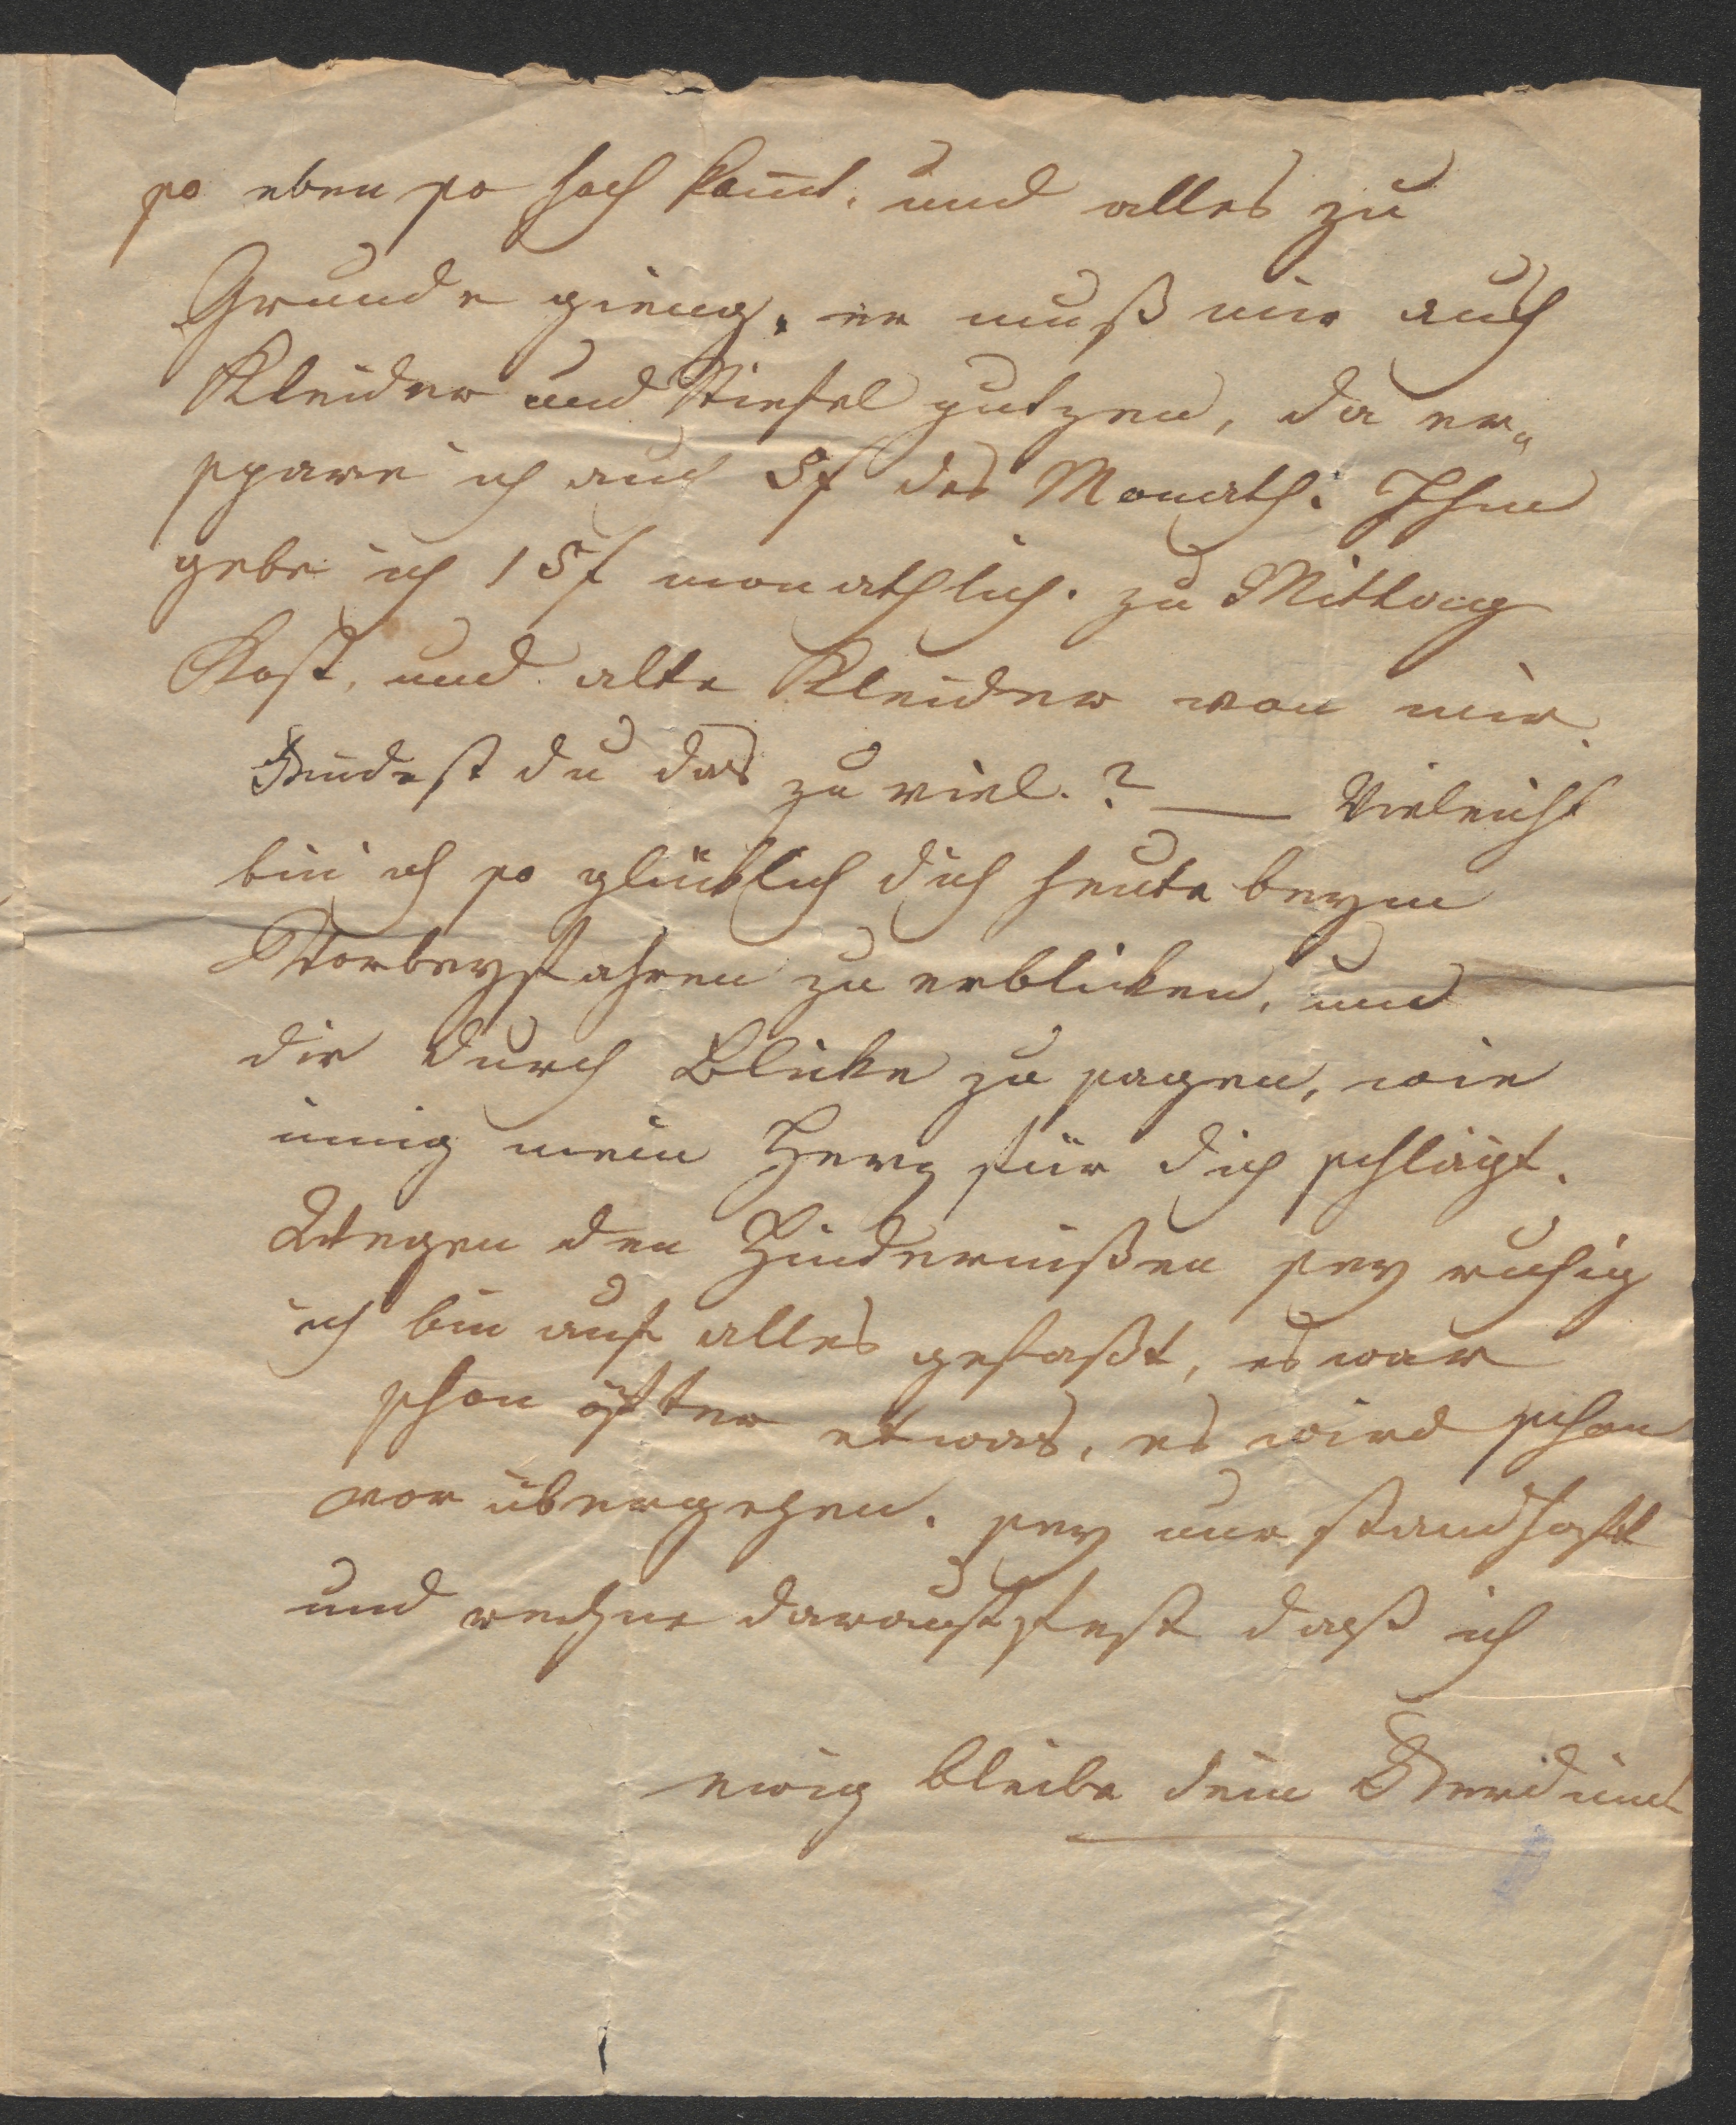 so eben so hoch kom̄t, und alles zu
Grunde gieng. er muß mir auch
Kleider und Stiefel putzen, da er„
spare ich auch 5f des Monath. Ihm
gebe ich 15f monathlich. zu Mittag
Kost, und alte Kleider von mir.
Findest du das zu viel.? — Vieleicht
bin ich so glücklich dich heute beym
Vorbeyfahren zu erblicken, und
dir durch Blicke zu sagen, wie
innig mein Herz für dich schlägt.
Wegen den Hindernißen sey ruhig
ich bin auf alles gefaßt, es war
schon öfter etwas, es wird schon
vorübergehen. sey nur standhaft
und rechne darauf fest daß ich
ewig bleibe dein Ferdinand